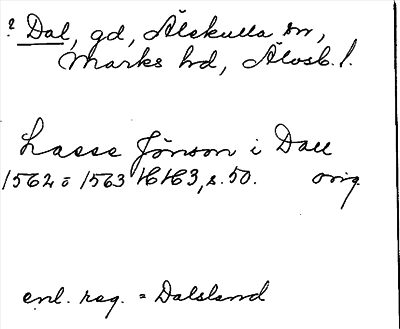 ? Dal, gd, Älekulla sn,
Marks hd, Älvsb. l.
Lasse Jönson i Dall
1562 o 1563 HH3, s. 50. orig.
enl. reg. = Dalsland